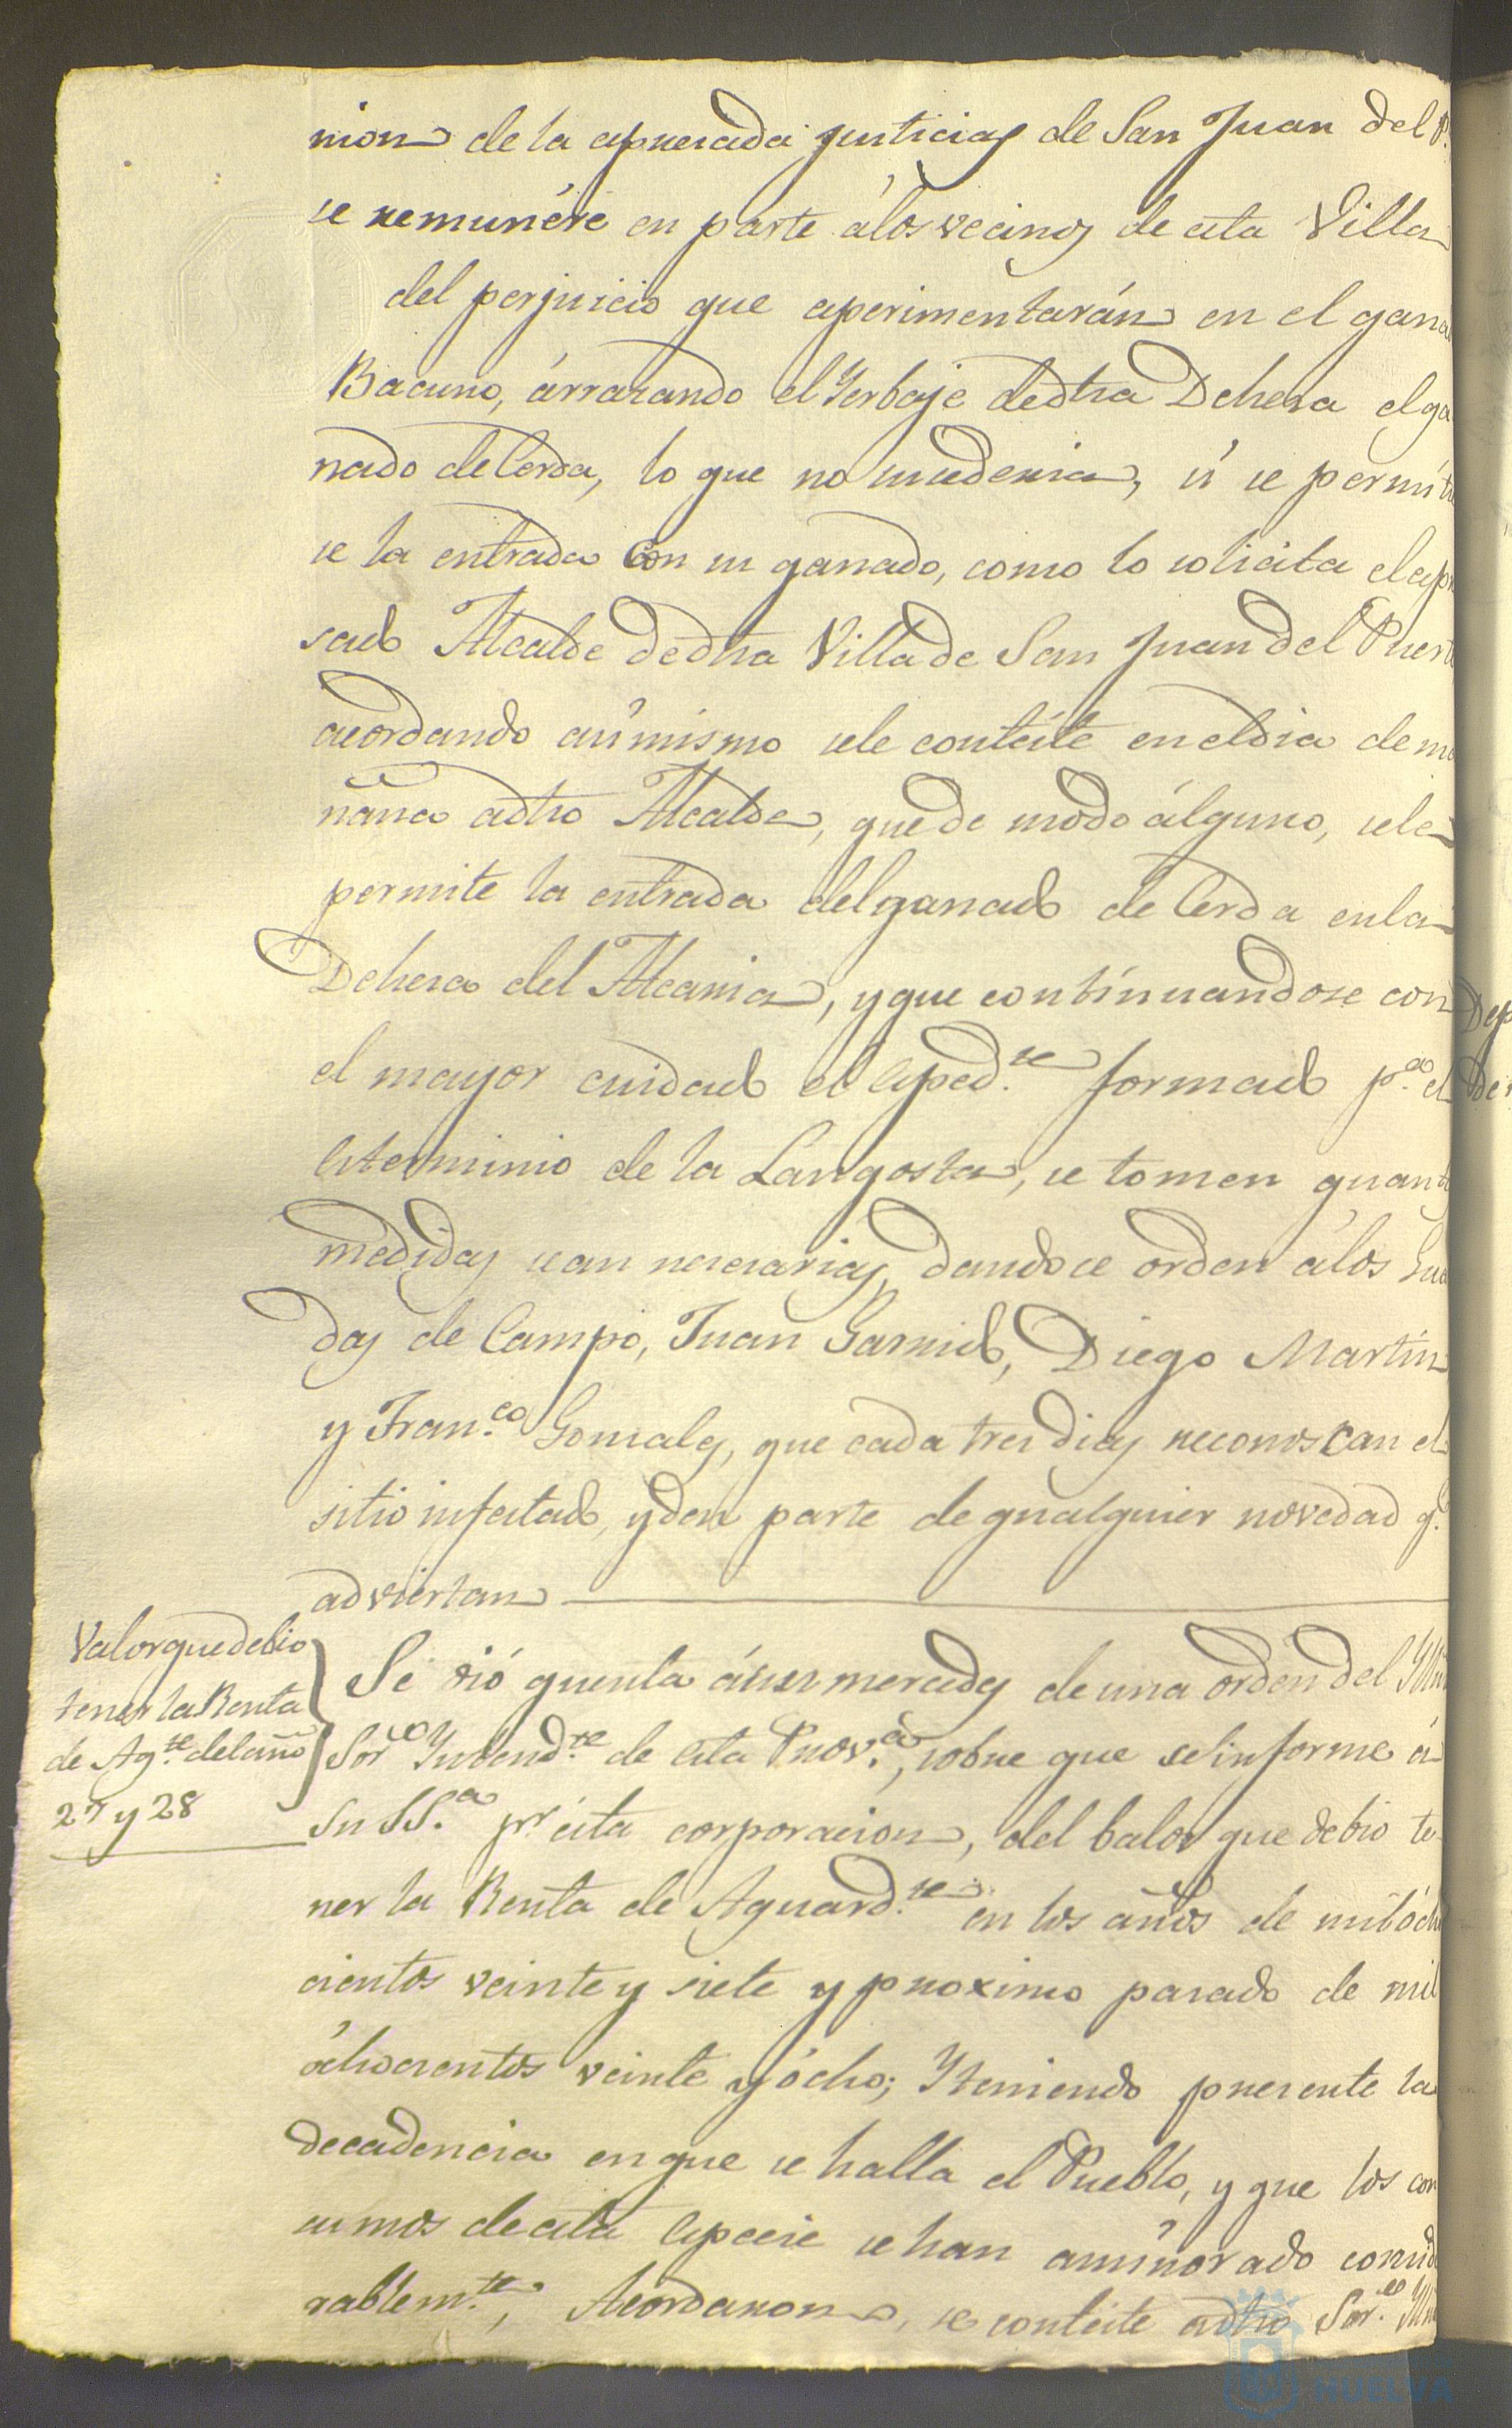 nion de la expresada justicias de San Juan del P.
se remunére en parte álos vecinos de esta Villa
del perjuicio que esperimentarán en el gana
Bacuno, árrazando el Yerbaje dedha Dehesa el ga
nado de Cerda, lo que no susederia, si se permiti
se la entrada con su ganado, como lo solicita el espre
sado Alcalde dedha Villa de San Juan del Puerto
acordando asímismo sele contéste eneldia de ma
ñana adho Alcalde, que de modo álguno, sele
permite la entrada delganado de Cerda enla
Dehesa del Alcania, y que continuandose con
el mayor cuidado el Esped.te formado p.a el
Esterminio de la Langosta, se tomen quantas
medidas sean nesesarias, dandose orden álos Gua
das de Campo, Juan Garrido, Diego Martin
y Fran.co Gonsales, que cada tres dias reconoscan el
sitio infestado, y den parte de qualquier novedad q.
adviertan
Valor que debio
tener la Renta
de Ag.te del año
27 y 28
Se dió quenta ásus mercedes de una orden del Yllmo
Sor. Yntend.te de esta Prov.a, sobre que se informe á
Su SS.a pr. ésta corporacion, del balor que debio te
ner la Renta de Aguard.te en los años de mil ócho
cientos veinte y siete y proximo pasado de mil
óchocientos veinte y ócho; Y teniendo presente la
decadencia en que se halla el Pueblo, y que los con
sumos de esta Especie se han aminorado conside
rablem.te, Acordaron, se contéste adho Sor. Yn
HUELVA